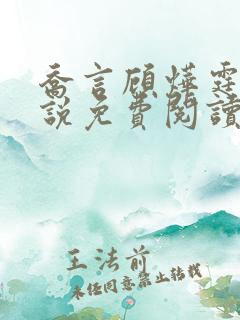 喬言顧燁霆
説免費閱讀
王法前
未经同意禁止转载